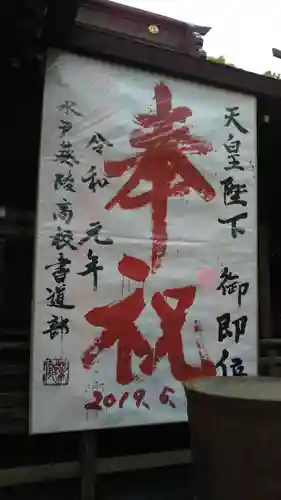 天皇陛下
御即位
奉祝
令和元年
水戸葵陵高校書道部
2019.6.